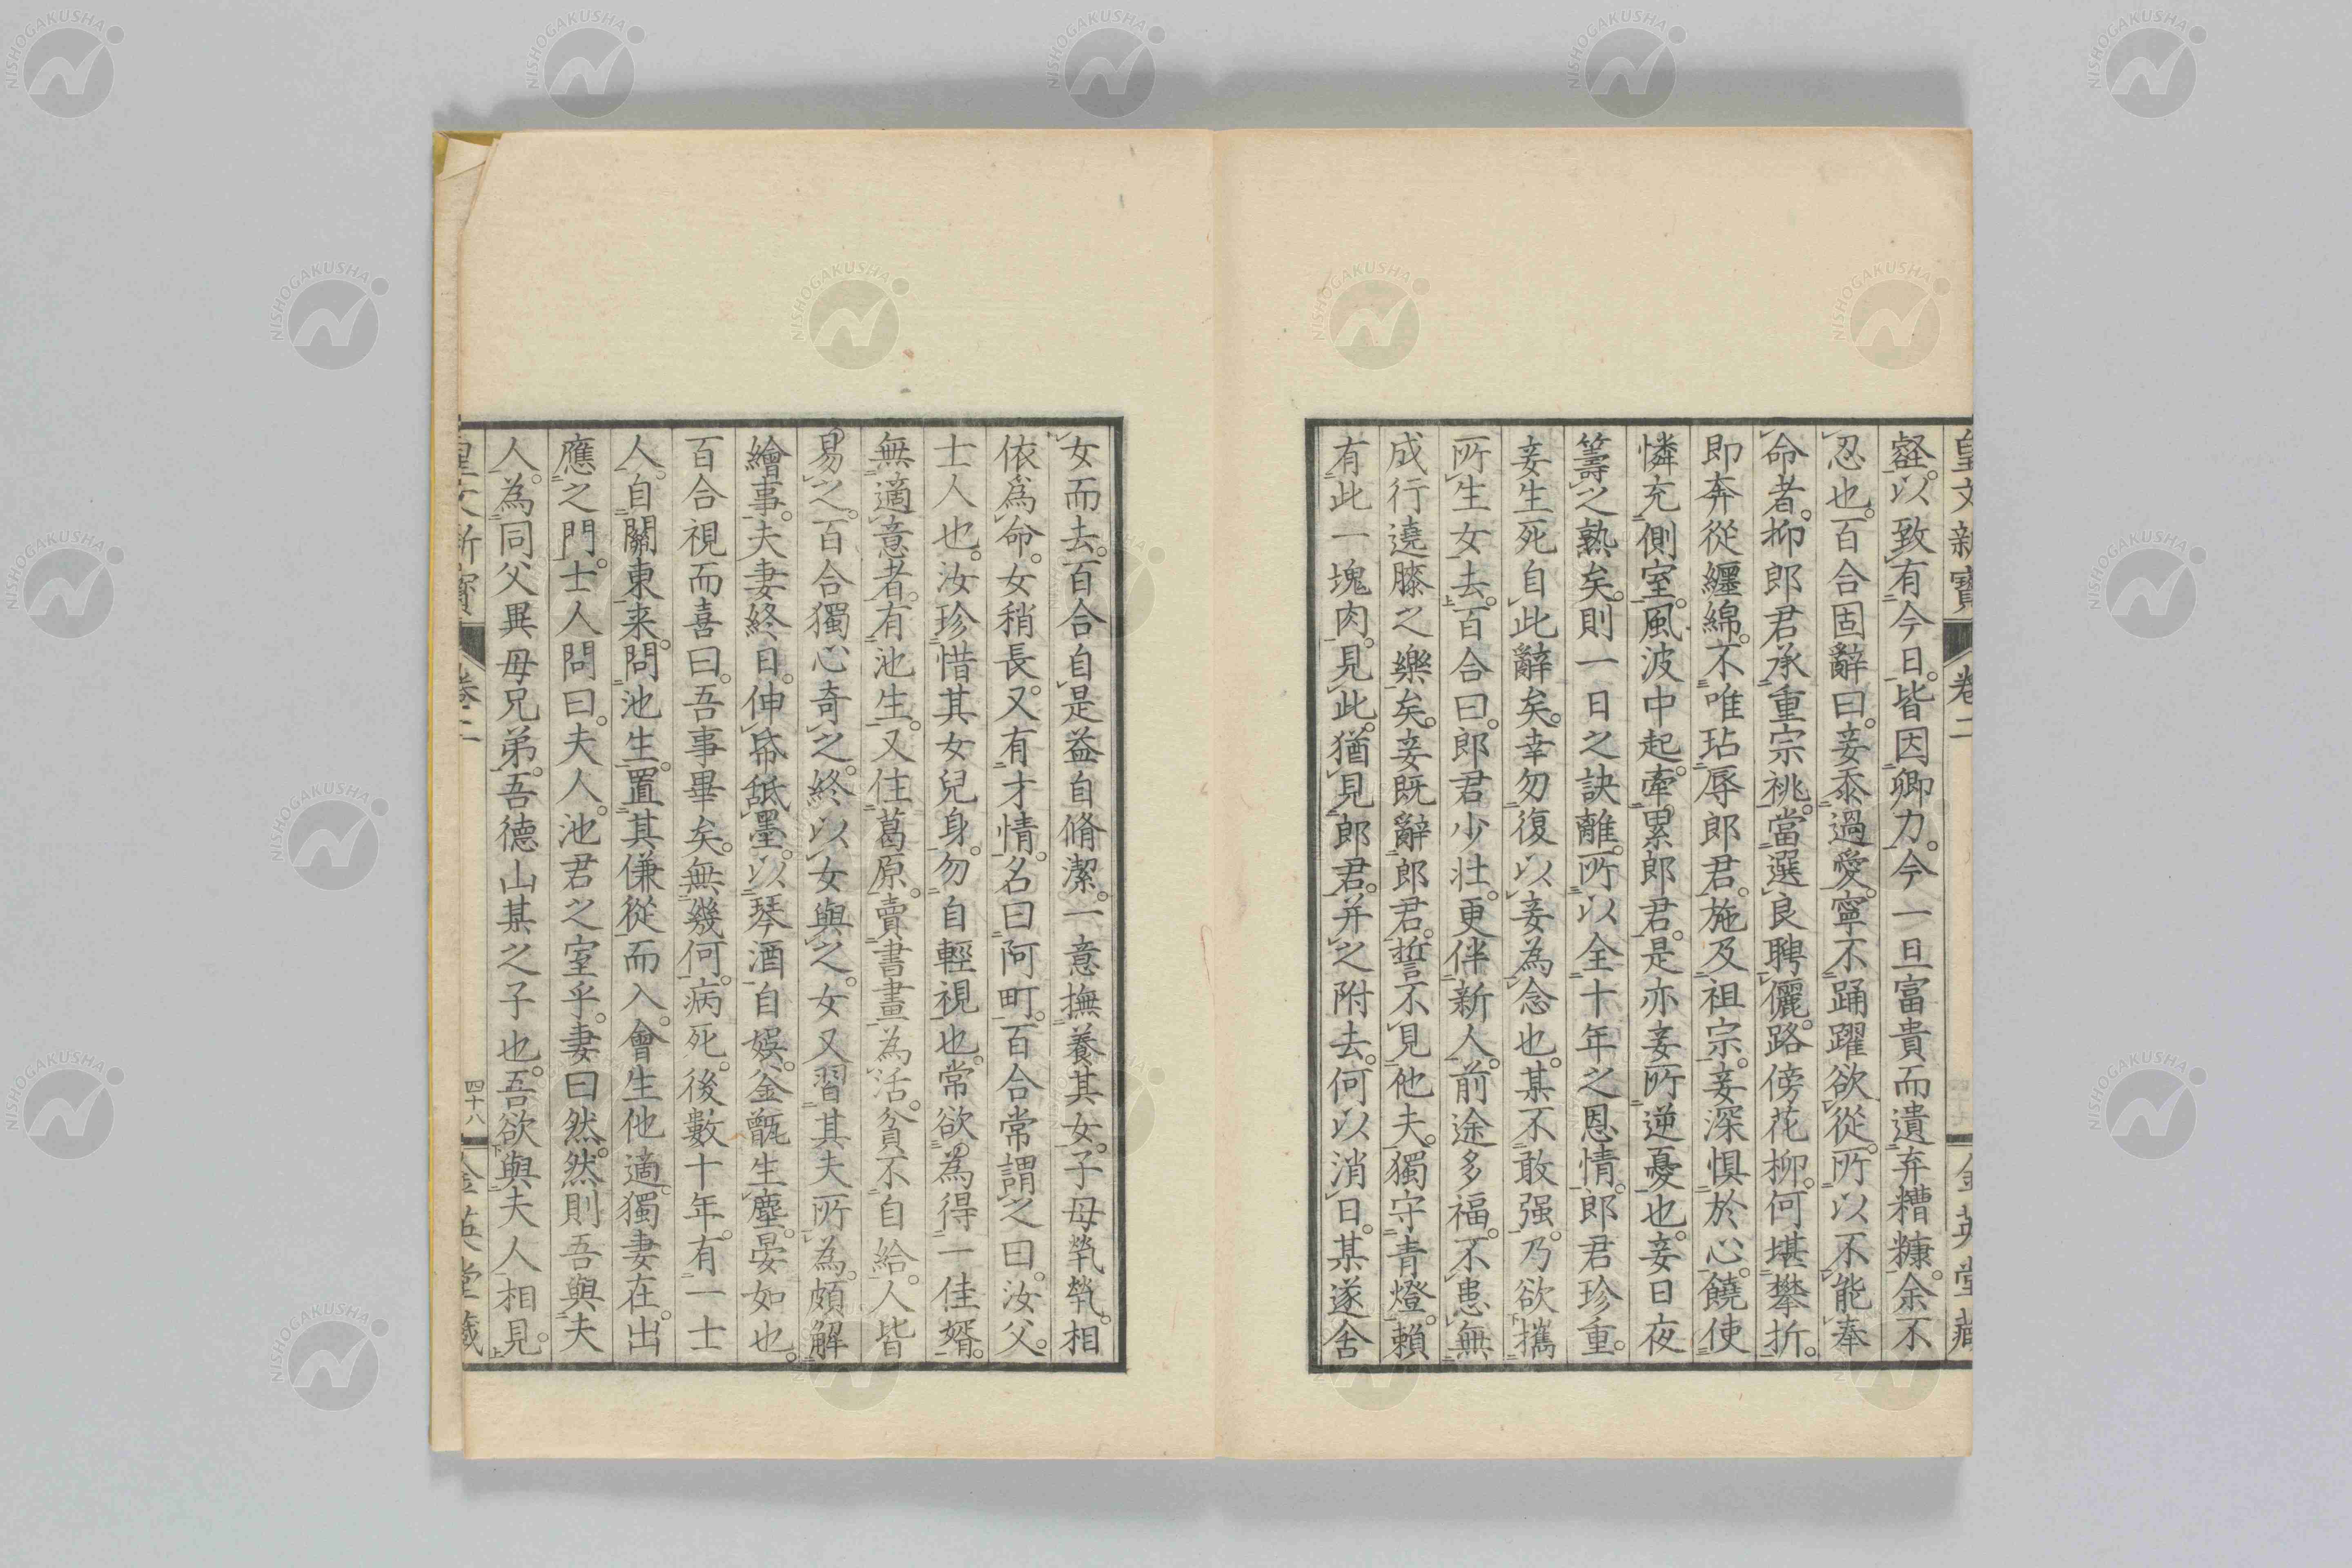 皇文新寶 卷二 金英堂藏
壑。以致有今日。皆因卿力。今一旦富貴而遺弃糟糠。余不
忍也。百合固辭曰。妾忝過愛。寧不踊躍欲從。所以不能奉
命者。抑郎君承重宗祧。當選良聘儷。路傍花柳。何堪攀折。
即奔從纏綿。不唯玷辱郎君。施及祖宗。妾深惧於心。饒使
憐充側室。風波中起。牽累郎君。是亦妾所逆憂也。妾日夜
籌之熟矣。則一日之訣離。所以全十年之恩情。郎君珍重。
妾生死自此辭矣。幸勿復以妾為念也。某不敢强。乃欲攜
所生女去。百合曰。郎君少壯。更伴新人。前途多福。不患無
成行遶膝之樂矣。妾既辭郎君。誓不見他夫。獨守青燈。賴
有此一塊肉。見此。猶見郎君。并之附去。何以消日。某遂舍
女而去。百合自是益自脩潔。一意撫養其女。子母煢煢。相
依為命。女稍長。又有才情。名曰阿町。百合常謂之曰。汝父。
士人也。汝珍惜其女兒身。勿自輕視也。常欲為得一佳婿。
無適意者。有池生。又住葛原。賣書畫為活。貧不自給。人皆
易之。百合獨心奇之。終以女與之。女又習其夫所為。頗解
繪事。夫妻終日。伸帋舐墨。以琴酒自娯。釜甑生塵。晏如也。
百合視而喜曰。吾事畢矣。無幾何。病死。後數十年。有一士
人。自關東来。問池生。置其傔從而入。會生他適。獨妻在。出
應之門。士人問曰。夫人。池君之室乎。妻曰然。然則吾與夫
人。為同父異母兄弟。吾德山某之子也。吾欲與夫人相見。
皇文新寶 卷二 四十八 金英堂藏
NISHOGAKUSHA